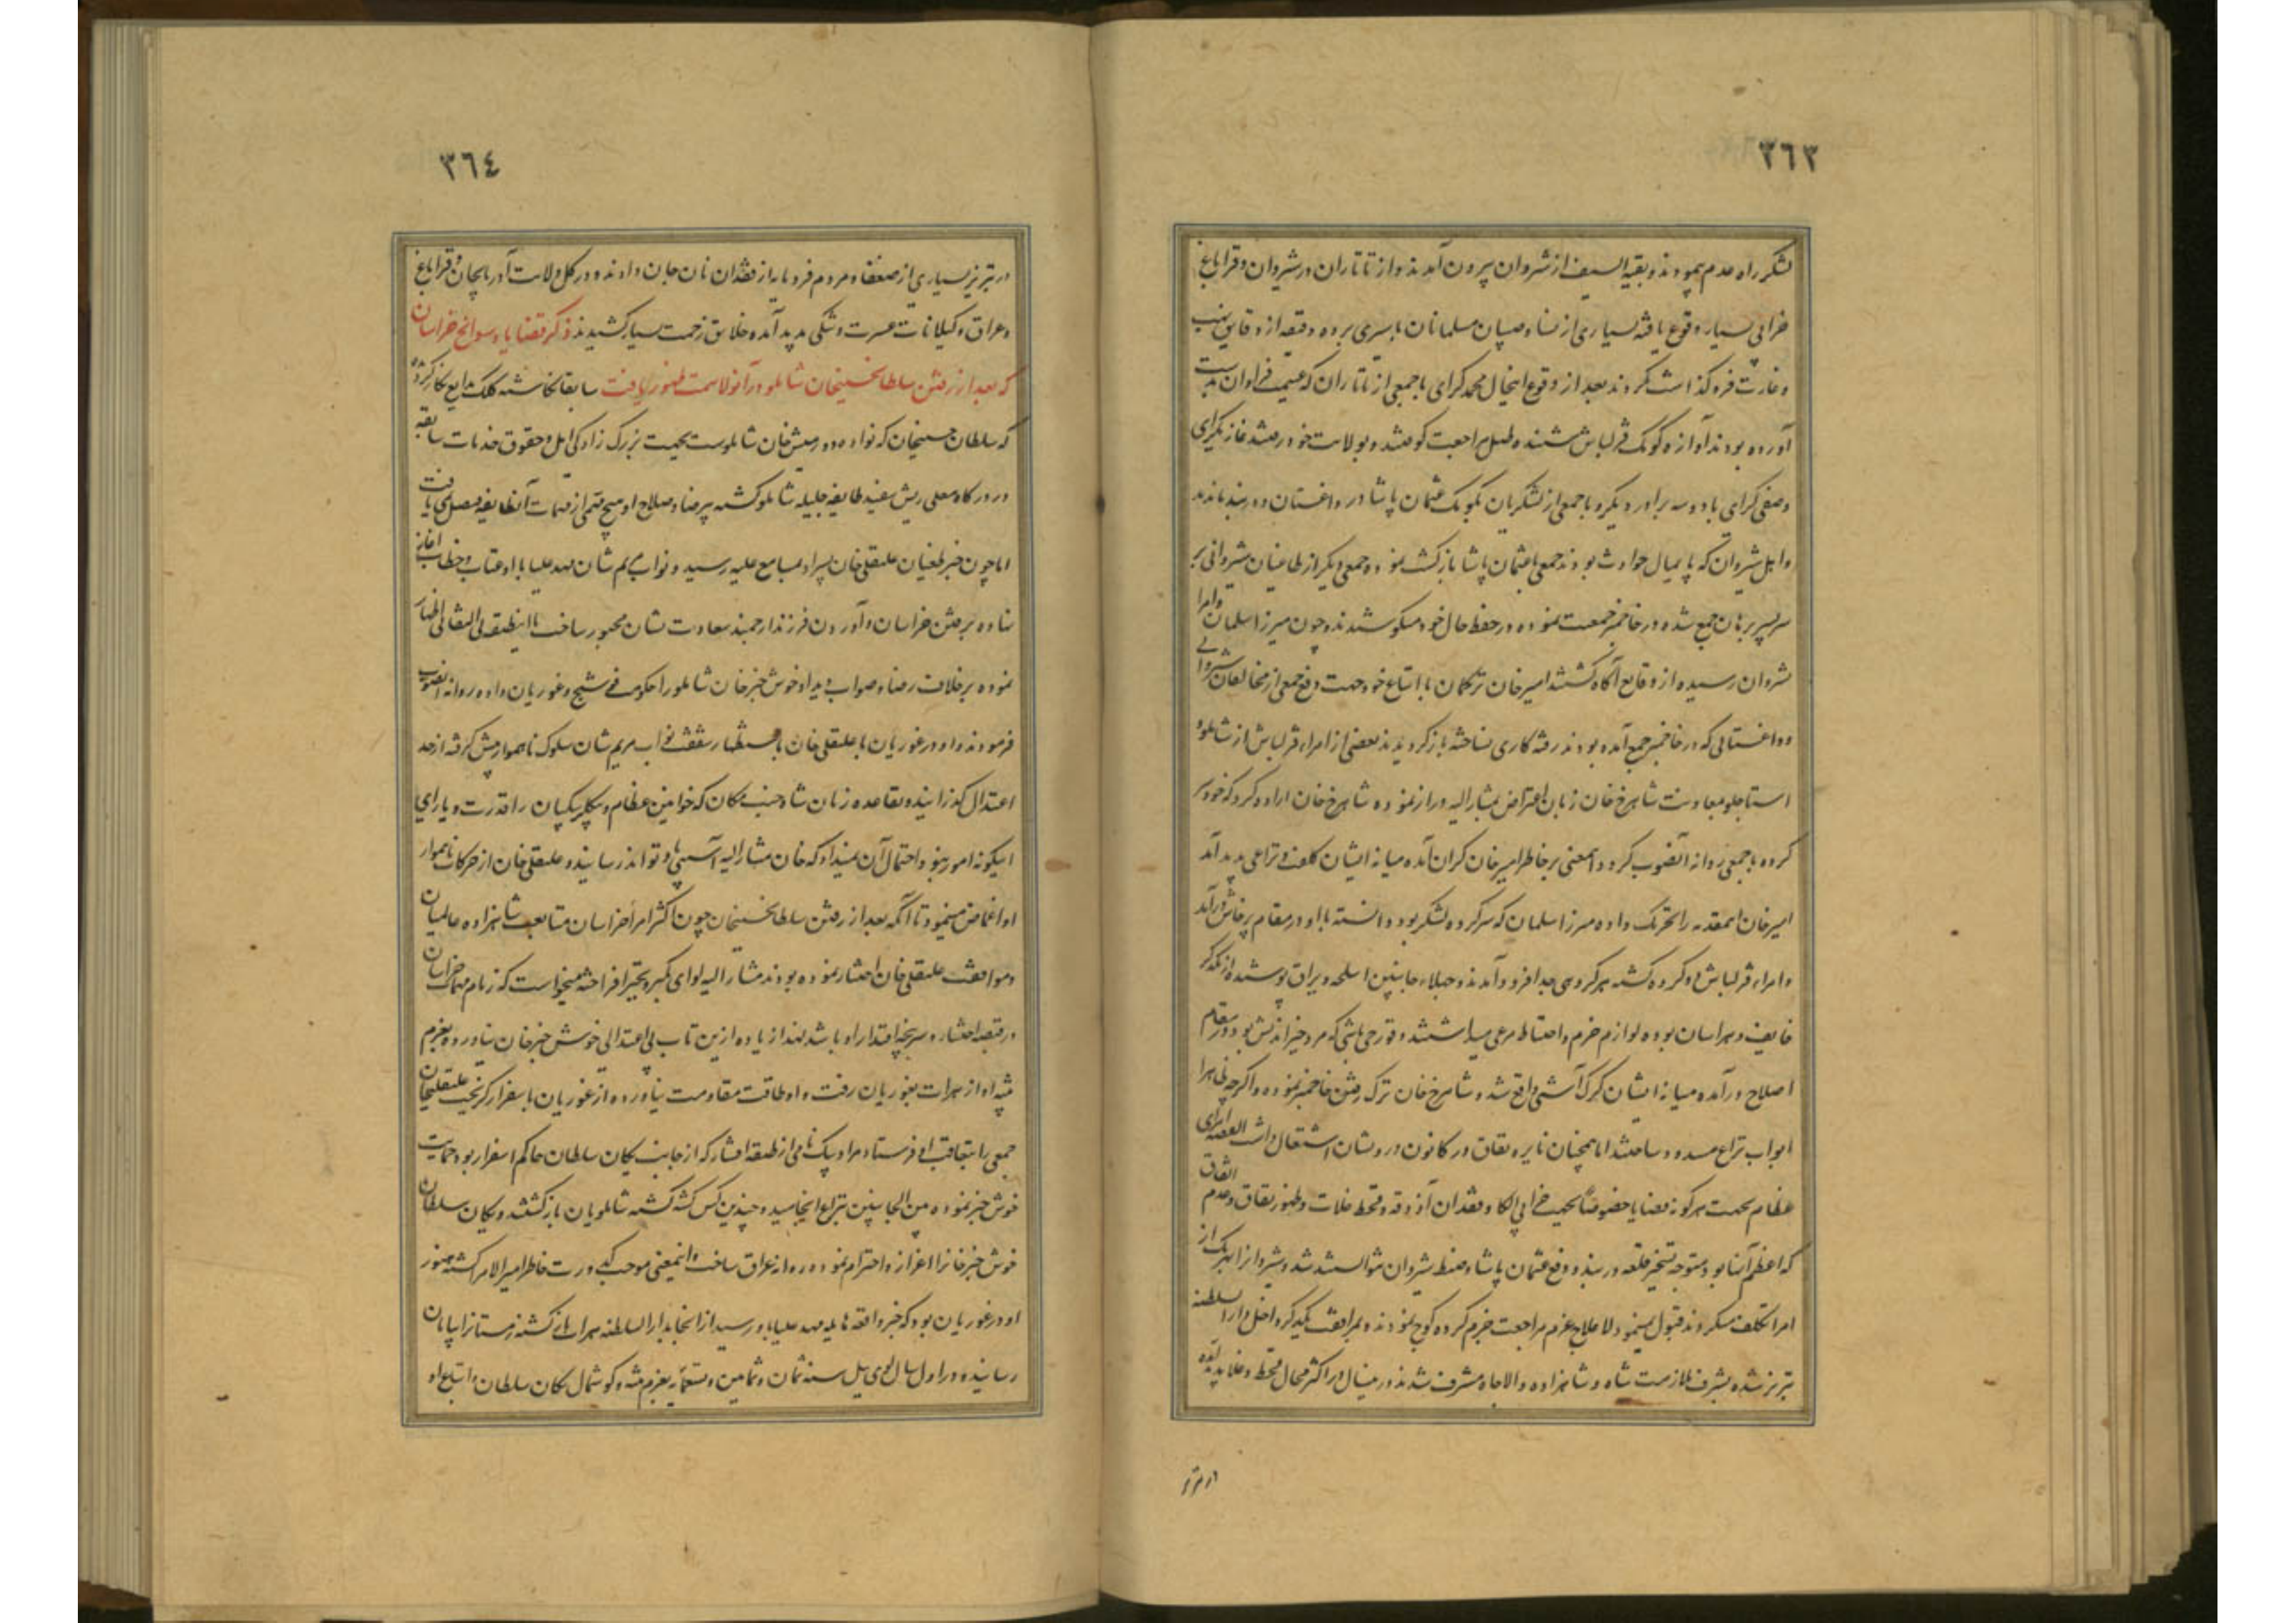 ٣٦٣
لشکر راه عدم پیمودند و بقیه السیف از شروان بیرون آمدند و از تاتاران در شیروان و قراباغ
خرابی بسیار وقوع یافته بسیاری از نساء و صبیان مسلمانان باسیری برده دقیقه از دقایق نهب
و غارت فروگذاشت نکردند بعد از وقوع اینحال محمد کرای با جمعی از تاتاران که غنیمت فراوان بدست
آورده بودند آوازه کومک قزلباش شنیده طبل مراجعت کوفتند و بولایت خود رفتند غازیکرای
وصفی کرای با دو سه برادر دیگر و با جمعی از لشکریان بکومک عثمان پاشا در داغستان و دربند ماندند
و اهل شیروان که پایمال حوادث بودند جمعی با عثمان پاشا بازگشت نموده و جمعی دیگر از طاغیان شروانی بر
سر پسر برهان جمع شده در خاخمز جمعیت نموده در حفظ حال خود میکوشیدند و چون میرزا سلمان و امرا
بشروان رسیده از وقایع آگاه گشتند امیرخان ترکمان با اتباع خود جهت دفع جمعی از مخالفان شروانی
و داغستانی که در خاخمز جمع آمده بودند رفته کاری نساخته باز گردیدند بعضی از امراء قزلباش از شاملو و
استاجلو بمعاونت شاهرخ خان زبان اعتراض بمشارالیه دراز نموده شاهرخ خان اراده کرد که خود سر
کرده با جمعی روانه آنصوب گردد اینمعنی بر خاطر امیرخان گران آمده میانه ایشان کلفت و نزاعی پدید آمد
امیرخان اینمقدمه را بتحریک و اراده میرزا سلمان که سرکرده لشکر بود دانسته با او در مقام پرخاش درآمد
و امراء قزلباش دو گروه گشته هر گروهی جدا فرود آمدند و جهلاء جانبین اسلحه و یراق پوشیده از یکدیگر
خایف و هراسان بوده لوازم حزم و احتیاط مرعی میداشتند و قورچی باشی که مرد خیراندیش بود در مقام
اصلاح درآمده میانه ایشان گرک آشتی واقع شد و شاهرخ خان ترک رفتن خاخمز نموده و اگرچه ظاهرا
ابواب نزاع مسدود ساختند اما همچنان نایره نفاق در کانون درونشان اشتعال داشت القصه امرای
عظام بجهت هرگونه قضایا خصوصاً بجهت خرابی الکا و فقدان آذوقه و قحط غلات و ظهور نفاق و عدم اتفاق
که اعظم آنها بود متوجه تسخیر قلعه دربند و دفع عثمان پاشا و ضبط شروان نتوانستند شد و شروانرا بهر یک از
امرا تکلیف میکردند قبول نمینمود لاعلاج عزم مراجعت جزم کرده کوچ نمودند و بمرافقت یکدیگر داخل دارالسلطنه
تبریز شده بشرف ملازمت شاه و شاهزاده والاجاه مشرف شدند در اینسال در اکثر محال قحط و غلا پدید آمده
در تبریز
٣٦٤
در تبریز بسیاری از ضعفا و مردم فرومایه از فقدان نان جان دادند و در کل ولایت آذربایجان و قراباغ
و عراق و گیلانات عسرت و تنگی پدید آمده خلایق زحمت بسیار کشیدند ذکر قضایا و سوانح خراسان
که بعد از رفتن سلطانحسینخان شاملو در آنولا سمت ظهور یافت سابقا نگاشته کلک بدایع نگار گردیده
که سلطان حسینخان که نواده دورمیش خان شاملوست بجهت بزرگ زادگی ایل و حقوق خدمات سابقه
در درگاه معلی ریش سفید طایفه جلیله شاملو گشته بیرضا و صلاح او هیچ مهمی از مهمات آنطایفه فیصل نمی یافت
اما چون خبر طغیان علیقلی خان پسر او بمسامع علیه رسید و نواب مریم شان مهد علیا با او عتاب و خطاب آغاز
نهاده برفتن خراسان و آوردن فرزند ارجمند سعادت نشان مجبور ساخت با اینطبقه بی التفاتی اظهار
نموده برخلاف رضا و صوابدید او خوش خبرخان شاملو را حکومت فوشنج و غوریان داده روانه آنصوب
فرمودند و او در غوریان با علیقلی خان باستظهار شفقت نواب مریم شان سلوک ناهموار پیش گرفته از حد
اعتدال گذرانیده بقاعده زمان شاه جنت مکان که خوانین عظام و بیگلربیگیان را قدرت و یارای
اینگونه امور نبود احتمال آن نمیداد که خان مشارالیه آسیبی باو تواند رسانید و علیقلی خان از حرکات ناهموار
او اغماض مینمود تا آنکه بعد از رفتن سلطانحسینخان چون اکثر امراء خراسان متابعت شاهزاده عالمیان
و موافقت علیقلی خان اختیار نموده بودند مشارالیه لوای تکبر و تجبر افراخته میخواست که زمام مهام خراسان
در قبضه اختیار و سرپنجه اقتدار او باشد لهذا زیاده ازین تاب بی اعتدالی خوش خبرخان نیاورده بعزم
تنبیه او از هرات بغوریان رفت و او طاقت مقاومت نیاورده از غوریان باسفزار گریخت علیقلیخان
جمعی را بتعاقب او فرستاد مراد بیک نامی از طبقه افشار که از جانب یکان سلطان حاکم اسفزار بود حمایت
خوش خبر نموده من الجانبین بنزاع انجامید و چندین کس کشته گشته شاملویان بازگشتند و یکان سلطان
خوش خبرخانرا اعزاز و احترام نموده روانه عراق ساخت و اینمعنی موجب کدورت خاطر امیرالامرا گشته هنوز
او در غوریان بود که خبر واقعه هایله مهد علیا باو رسید از آنجا بدارالسلطنه هرات بازگشته زمستانرا بپایان
رسانیده در اول سال لوی ییل سنه ثمان و ثمانین و تسعمایه بعزم تنبیه و گوشمال یکان سلطان و اتباع او